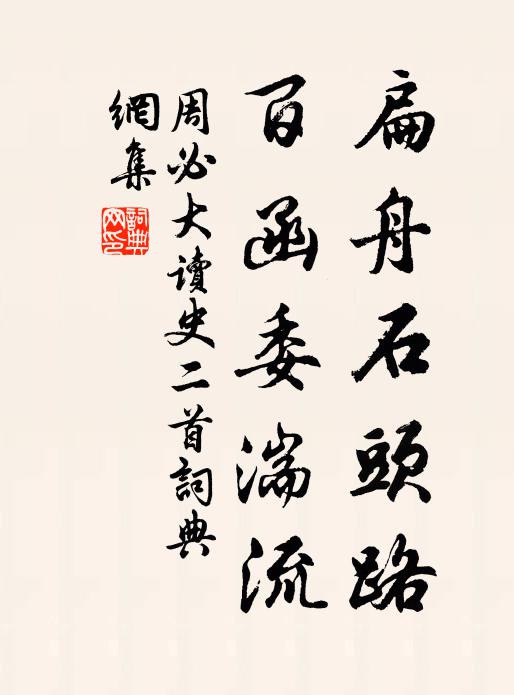 扁舟石頭路
百函委湍流
周必大讀史二首詞典
網集
詞典網印